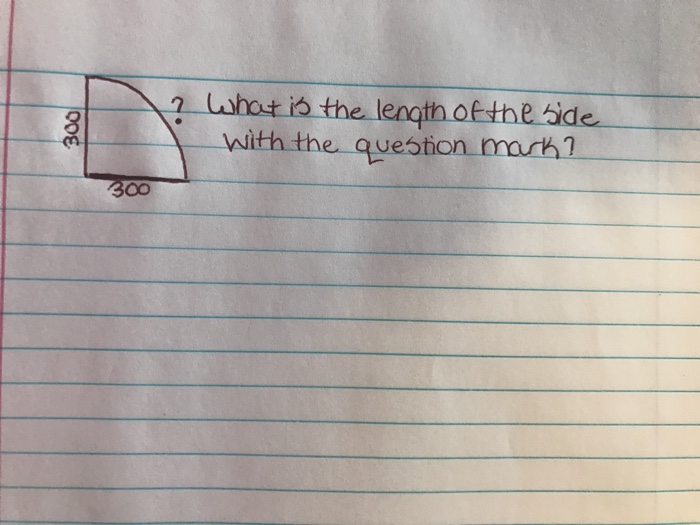 300
? What is the length of the side
with the question mark?
300